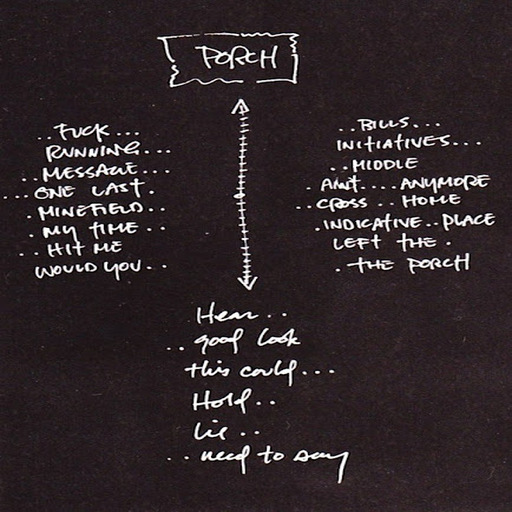 PORCH
..FUCK...
RUNNING...
..MESSAGE...
...ONE LAST.
.MINEFIELD..
.MY TIME..
..HIT ME
WOULD YOU..
..BILLS...
INITIATIVES...
..MIDDLE
.AINT....ANYMORE
..CROSS..HOME
.INDICATIVE..PLACE
LEFT THE.
.THE PORCH
Hear..
..good look
this could...
Hold..
Lie..
..need to say